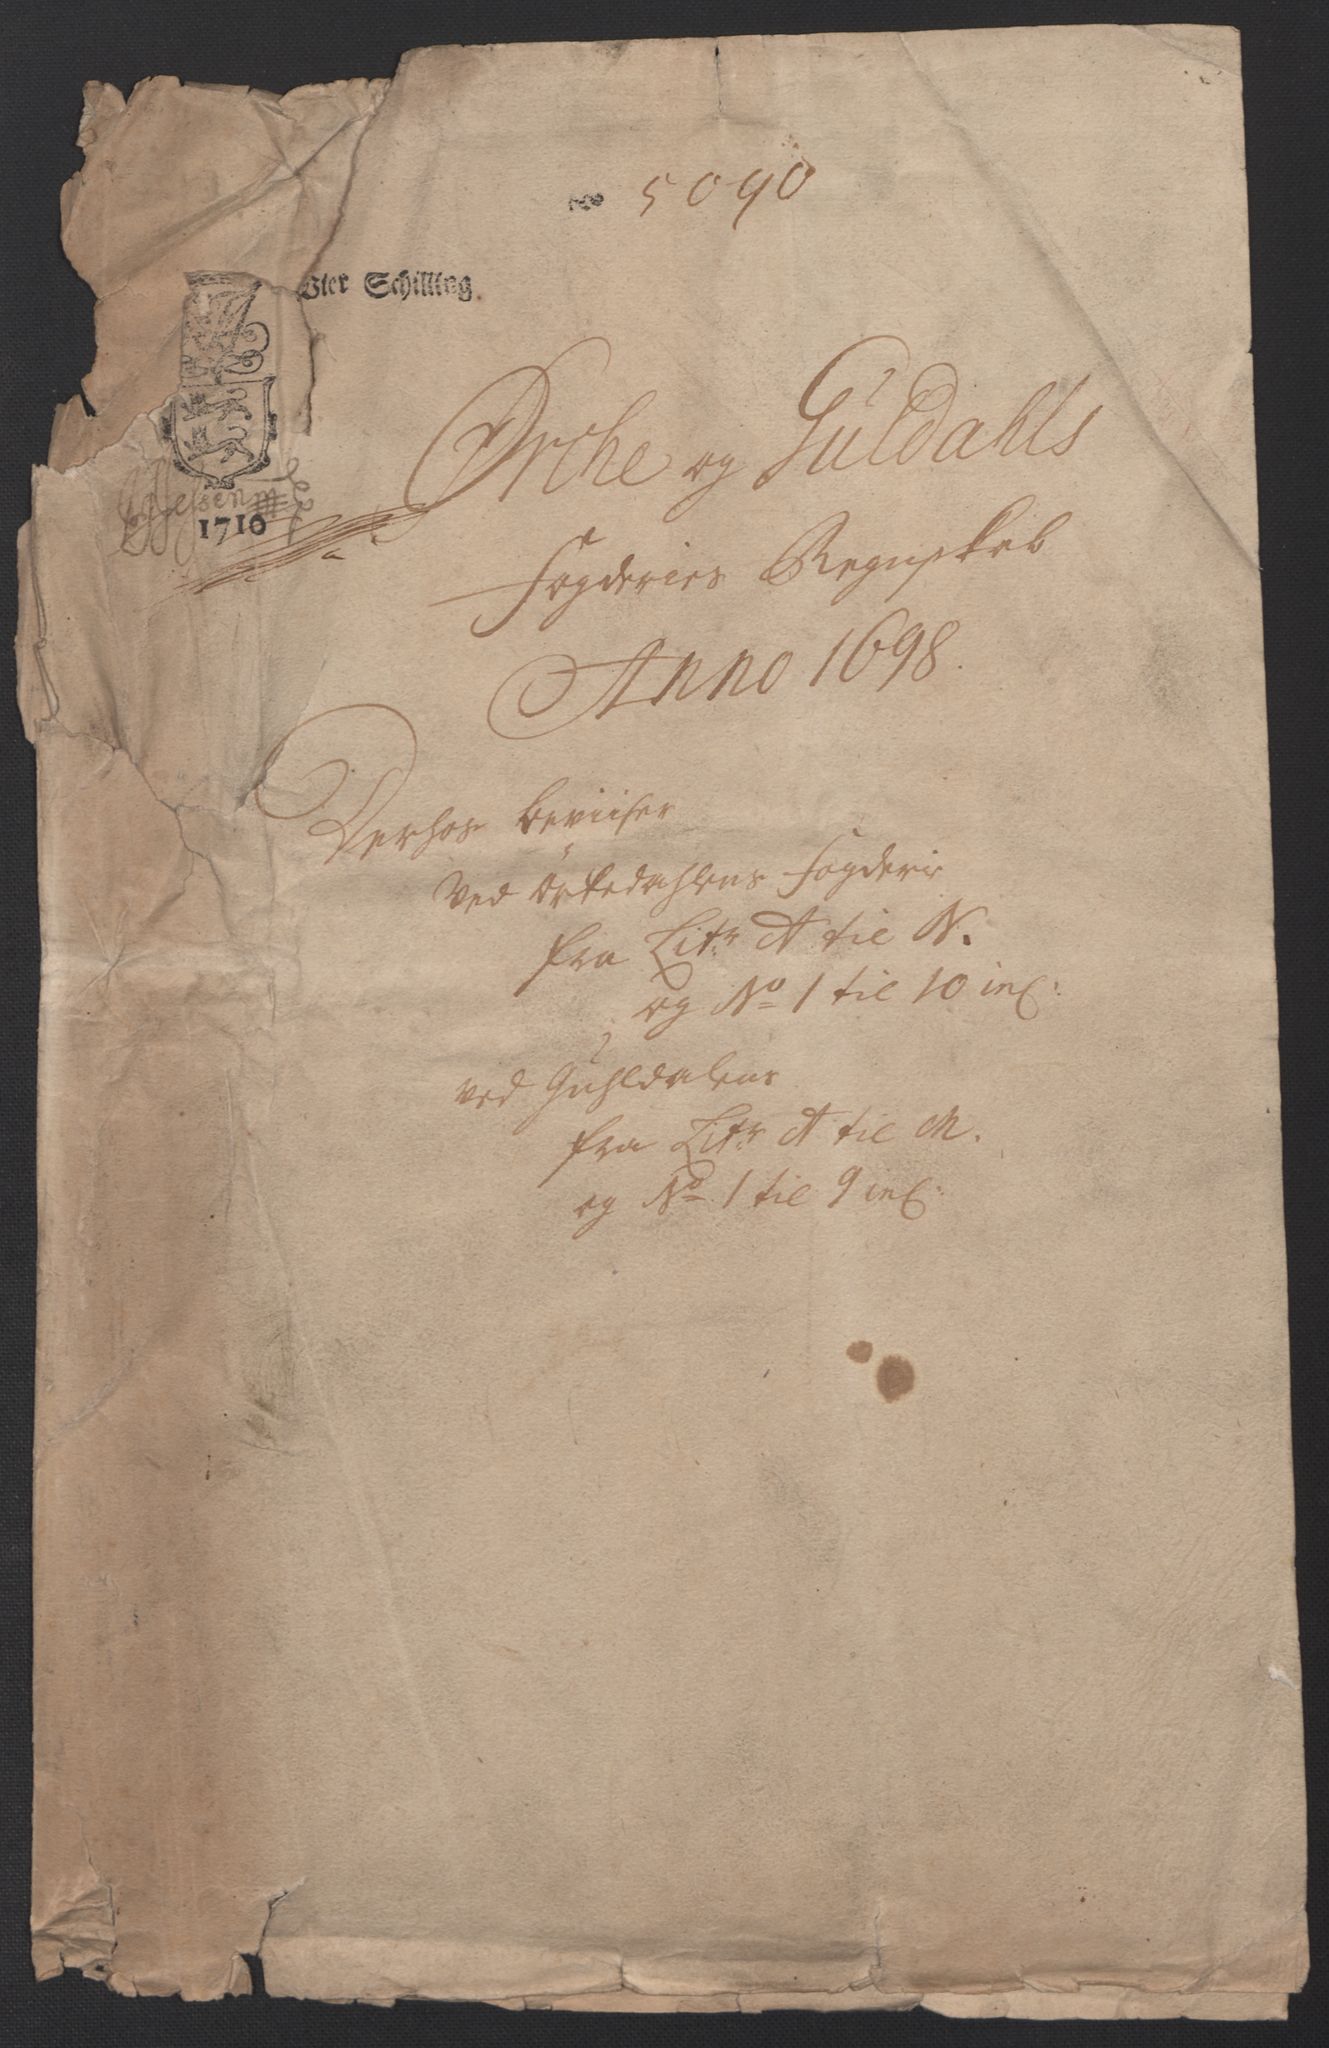 No 5090
Vier Schilling.
1710
Ørche og Güldahls
Fogderies Regnskab
Anno 1698.
Derhos beviiser
ved Örkedahlens Fogderie
fra Litr A til N.
og No 1 til 10 incl:
ved Guhldalens
fra Litr A til M.
og No 1 til 9 incl: